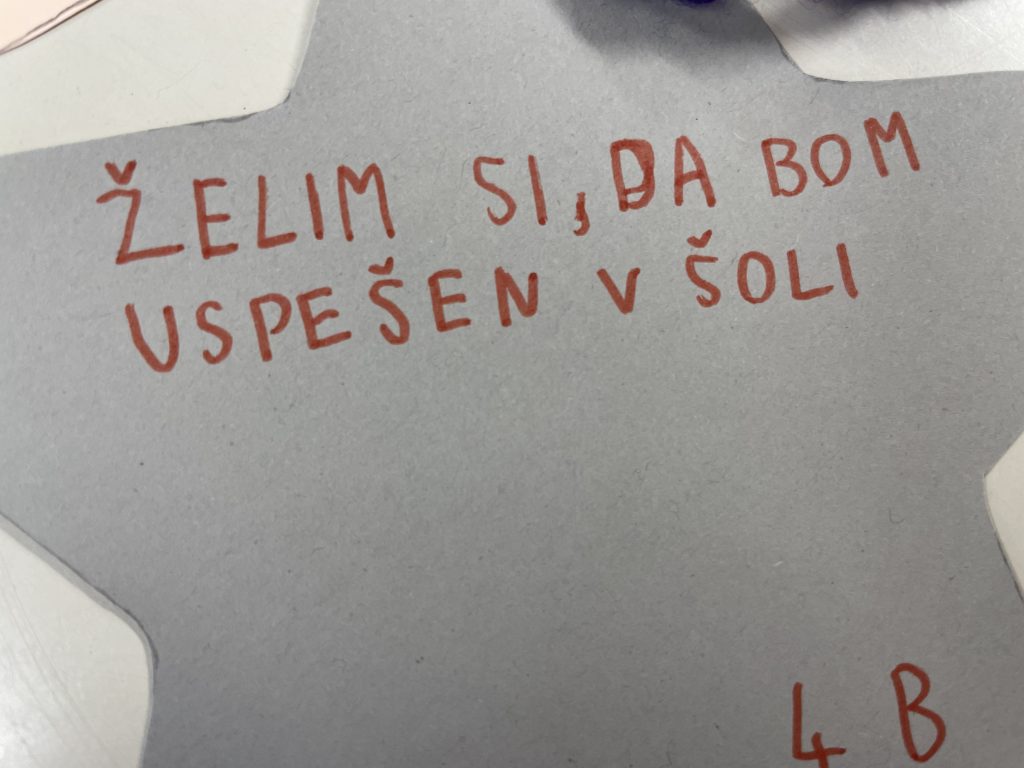 ŽELIM SI, DA BOM
USPEŠEN V ŠOLI
4 B